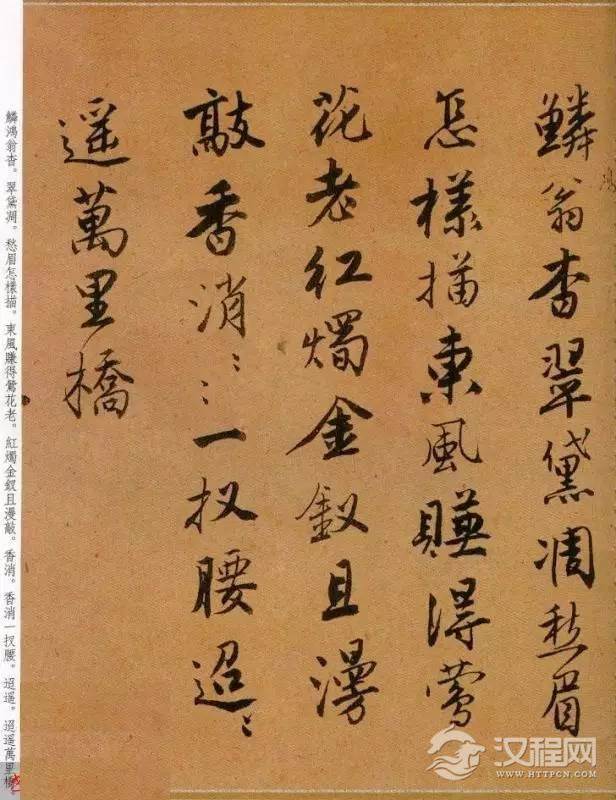 鱗翁杳翠黛凋愁眉
鴻
怎樣描東風賺得鶯
花老紅燭金釵且漫
敲香消〻〻一扠腰迢〻
遥萬里橋
鱗鴻翁杳。翠黛凋。愁眉怎樣描。東風賺得鶯花老。紅燭金釵且漫敲。香消。香消一扠腰。迢遥。迢遥萬里橋
汉程网
WWW.HTTPCN.COM